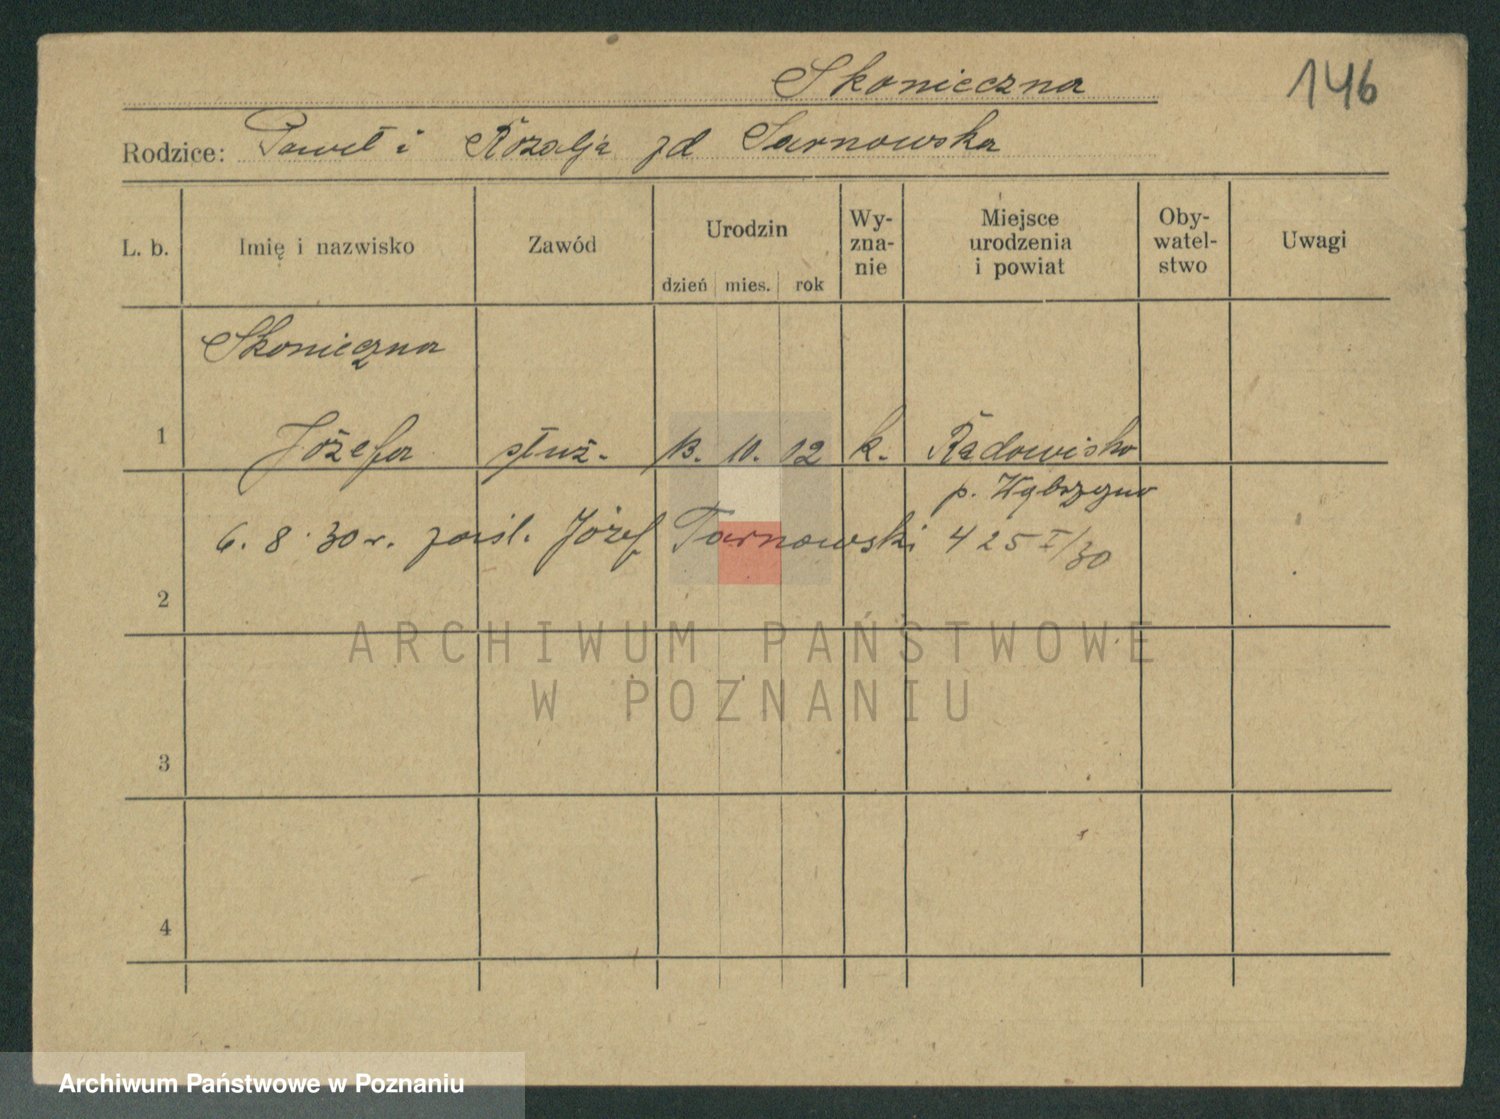 Skonieczna
146
Rodzice: Paweł i Rozalja zd Sarnowska
L. b. Imię i nazwisko Zawód Urodzin Wy-zna-nie Miejsce urodzenia i powiat Oby-watel-stwo Uwagi
dzień mies. rok
Skonieczna
1 Józefa służ. 13. 10. 12 k. Radowisko
p. Wąbrzeźno
6. 8. 30 r. zaśl. Józef Tarnowski 425 I/30
2
ARCHIWUM PAŃSTWOWE
W POZNANIU
3
4
Archiwum Państwowe w Poznaniu